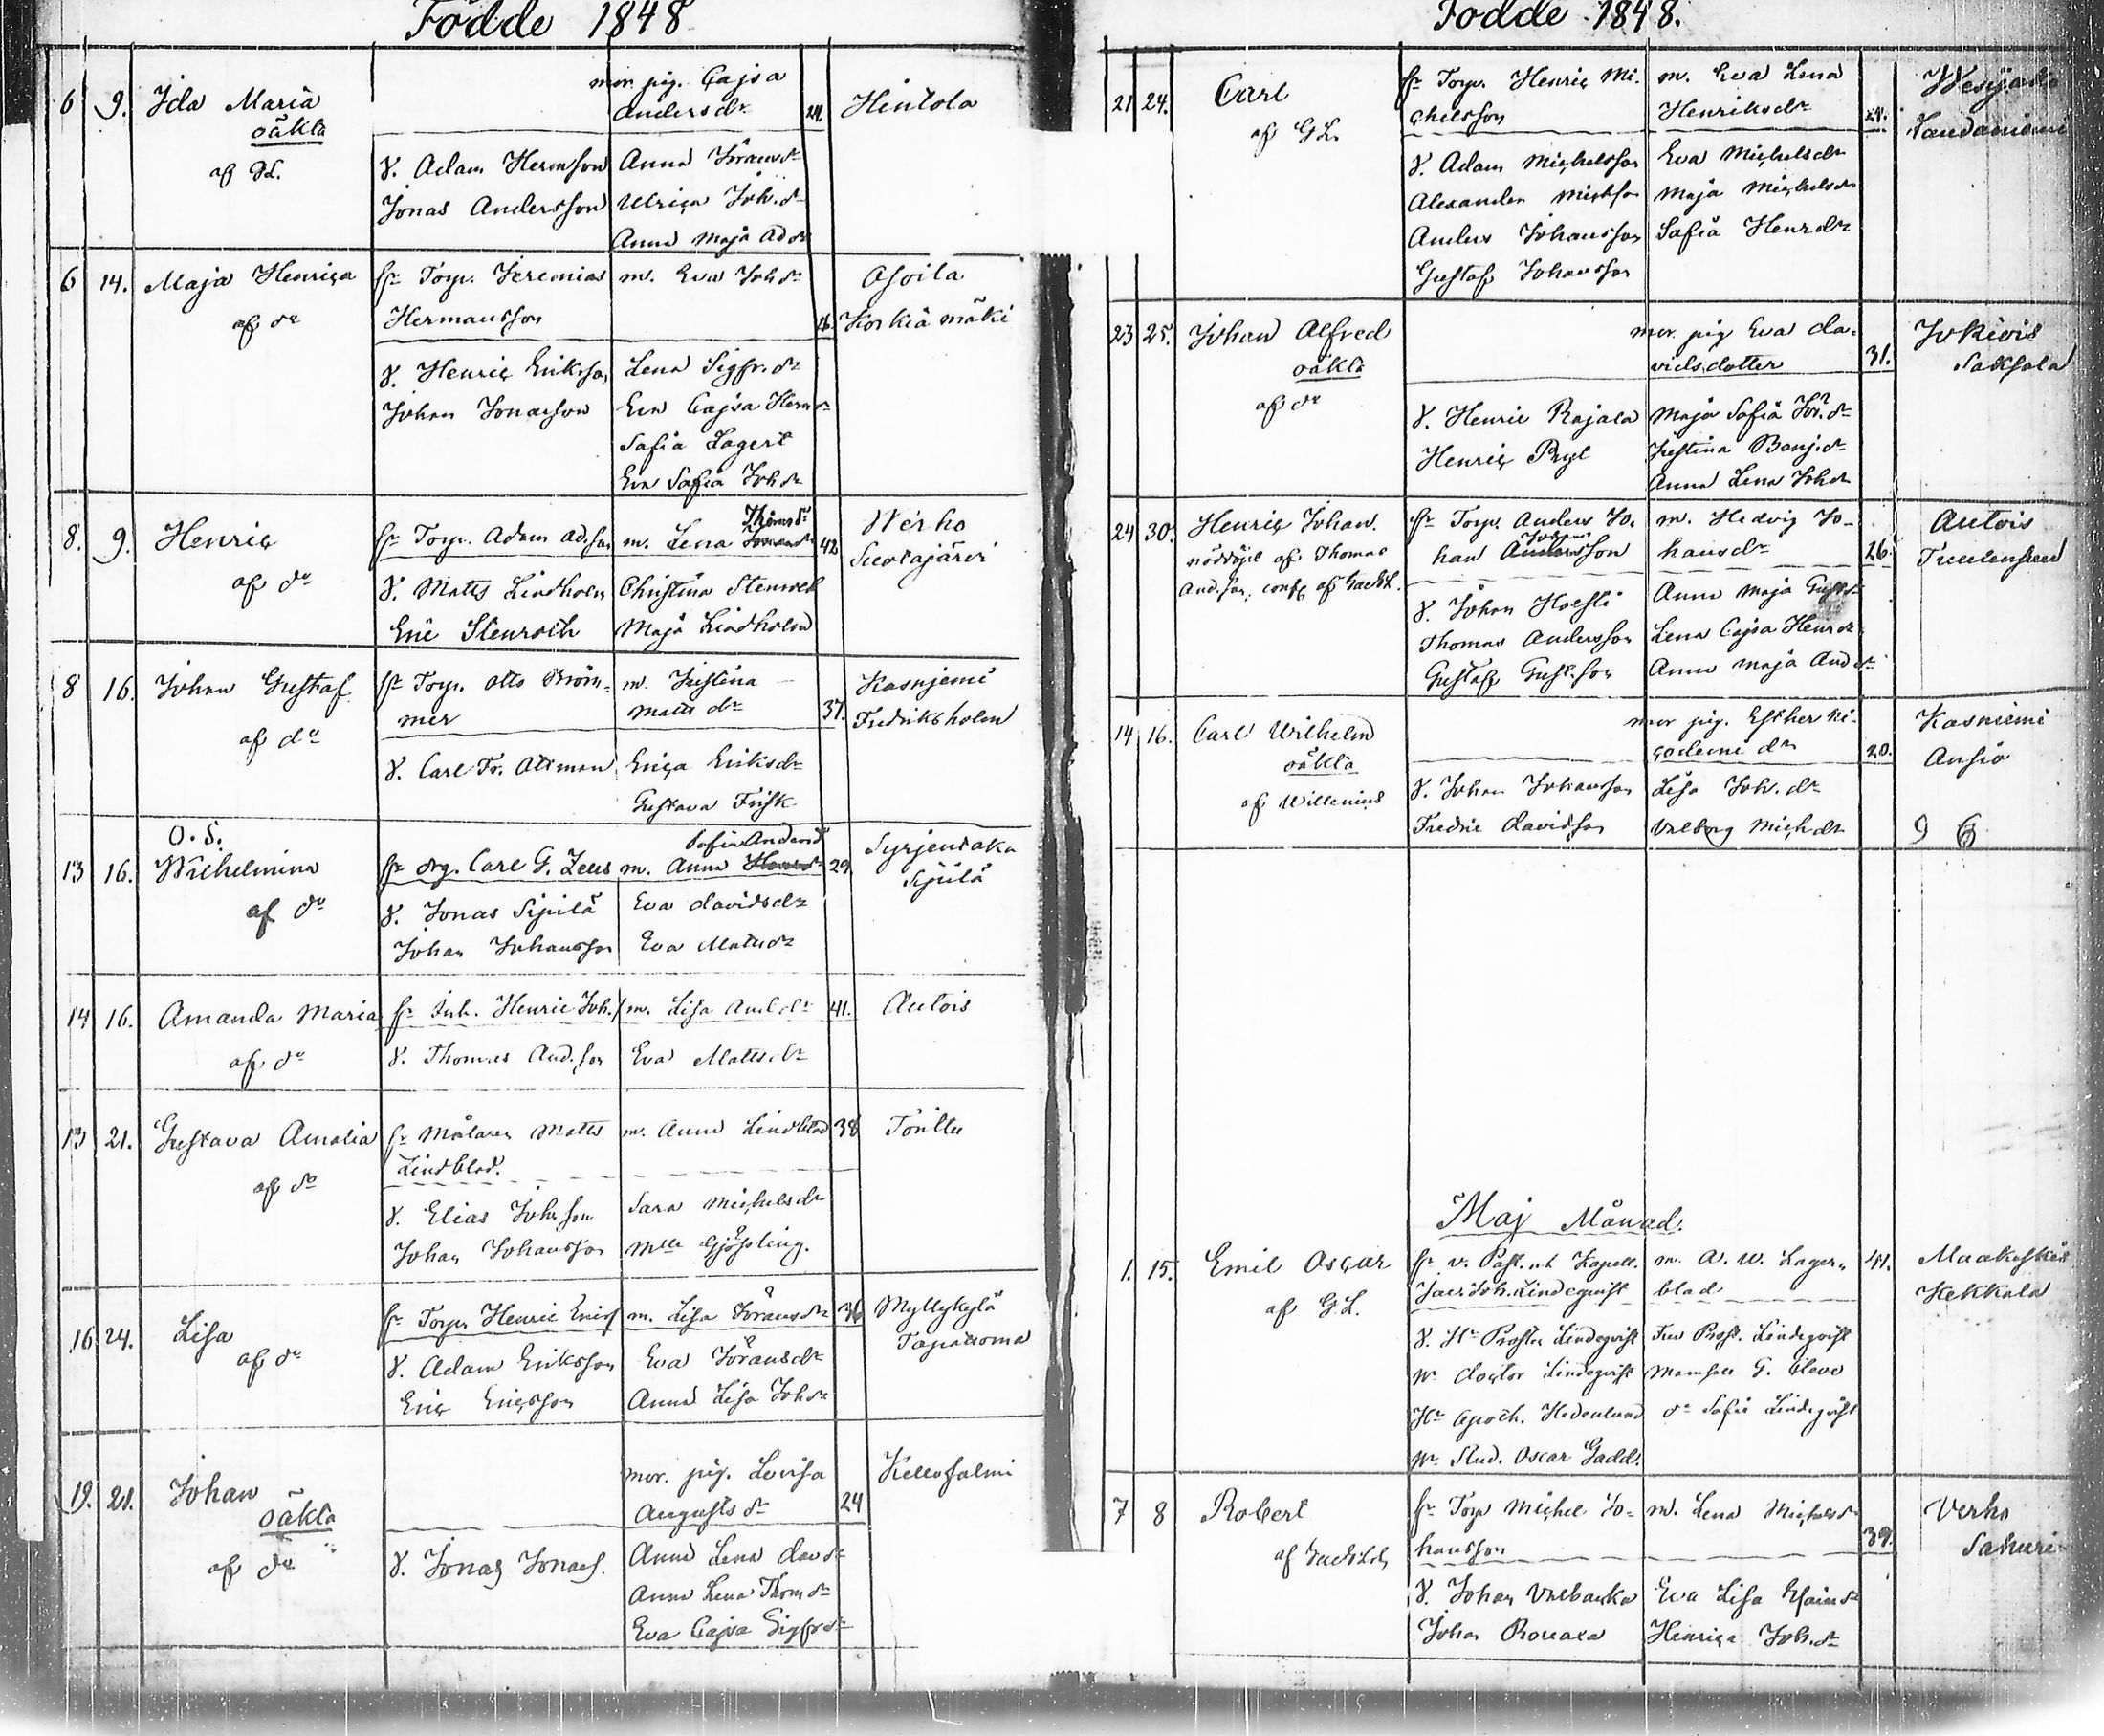 Födde 1848
6 9. Ida Maria mor. pig. Cajsa Hintola
oäkta Andersdr 24.
af GL. F. Adam Hermsson Anna Göransdr
Jonas Andersson Ulrica Joh.dr
Anna Maja Addr
6 14. Maja Henrica fr Torp. Jeremias m. Eva Johdr
af do Hermansson Korkiamäki
F. Henric Eriksson Lena Sigfr.dr
Johan Jonasson Eva Cajsa Hermdr
Safia Lagert
Eva Safia Johdr
8. 9. Henric fr Torp. Adam Ad.son m. Lena Thomsdr 42 Werho
af do F. Matts Lindholm Christina Stenroth
Eric Stenroth Maja Lindholm
8 16. Johan Gustaf fr Torp. Otto m. Justina Kasnjemi
mer Mattsdr 37. Fredriksholm
af do F. Carl Fr. Attman Erica Eriksdr
Gustava Frisk
O. S. Sofia Andersd
13 16. Wilhelmina fr drg. Carl G. Zeus m. Anna 29. Syrjentaka
Sipilä
af do F. Jonas Sipilä Eva Davidsdr
Johan Johansson Eva Matsdr
14 16. Amanda Maria fr Inh. Henric Joh. m. Lisa And.dr 41. Autois
af do F. Thomas And.son Eva Mattsdr
13 21. Gustava Amalia fr Målaren Matts m. Anna Lindblad 38 Tönllu
Lindblad.
af do F. Elias Johsson Sara Michelsdr
Johan Johansson Mlle Gjösling.
16 24. Lisa fr Torp. Henric Erics m. Lisa Göransdr 36 Myllykylä
af do F. Adam Eriksson Eva Göransdr
Eric Ericsson Anna Lisa Johdr
19. 21. Johan mor. pig. Lovisa Kellosalmi
oäkta Augustsdr 24
af do F. Jonas Jonass. Anna Lena Davdr
Anna Lena Thomdr
Eva Cajsa Sigfrdr
Födde 1848.
21 24. Carl fr Torp. Henric Mi- m. Eva Lena
af GL. chelsson Henriksdr
F. Adam Michelsson Eva Michelsdr
Alexander Michson Maja Michelsdr
Anders Johansson Safia Henrdr
Gustaf Johansson
23 25. Johan Alfred mor. pig Eva Da- Jokiois
oäkta vidsdotter 31. Saksala
af do F. Henric Rajala Maja Safia Jör.dr
Henric Ryl Justina Benj.dr
Anna Lena Johdr
24 30. Henric Johan. fr Torp. Anders Jo- m. Hedvig Jo- Autois
nöddöpt af Thomas han Andersson hansdr 26.
And.son, conf. af Gadd. F. Johan Hoesti Anna Maja Gustsdr
Thomas Andersson Lena Cajsa Henrdr
Gustaf Gust.son Anna Maja Anddr
14 16. Carl Wilhelm mor pig. Esther Ni- Kasniemi
oäkta codemi dr 20. Ansio
af Willenius F. Johan Johansson Lisa Joh.dr
Fredric Davidson Valborg Michdr 9 6
Maj Månad.
1. 15. Emil Oscar fr v. Past. och Kapell. m. A. W. Lager- 41. Maakeskis
af G.L. Jac. Joh. Lindeqvist blad Kekkola
F. Hr Prosten Lindeqvist Fru Prost. Lindeqvist
Hr Doctor Lindeqvist Mamsell G. Cleve
Hr Apoth. Hedenlund do Safie Lindeqvist
Hr Stud. Oscar Gadd.
7 8 Robert fr Torp Michel Jo- m. Lena Michelsdr Verho
af hansson 39.
F. Johan Eva Lisa
Johan Henrica Joh.dr